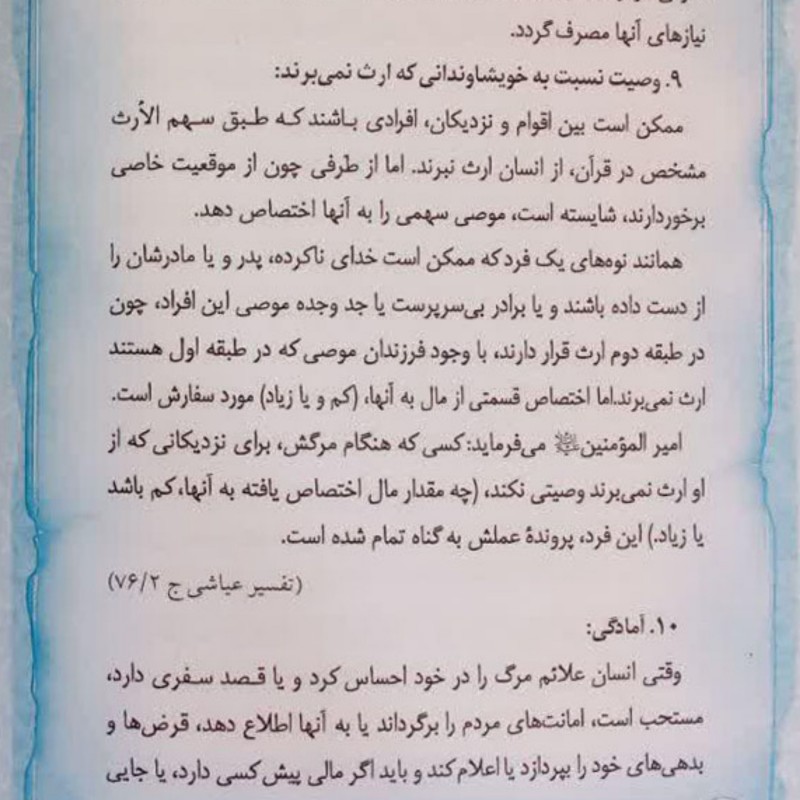 نیازهای آنها مصرف گردد.
۹. وصیت نسبت به خویشاوندانی که ارث نمی‌برند:
ممکن است بین اقوام و نزدیکان، افرادی باشند که طبق سهم الأرث
مشخص در قرآن، از انسان ارث نبرند. اما از طَرفی چون از موقعیت خاصی
برخوردارند، شایسته است، موصی سهمی را به آنها اختصاص دهد.
همانند نوه‌های یک فرد که ممکن است خدای ناکرده، پدر و یا مادرشان را
از دست داده باشند و یا برادر بی‌سرپرست یا جد وجده موصی این افراد، چون
در طبقه دوم ارث قرار دارند، با وجود فرزندان موصی که در طبقه اول هستند
ارث نمی‌برند.اما اختصاص قسمتی از مال به آنها، (کم و یا زیاد) مورد سفارش است.
امیر المؤمنین می‌فرماید: کسی که هنگام مرگش، برای نزدیکانی که از
او ارث نمی‌برند وصیتی نکند، (چه مقدار مال اختصاص یافته به آنها، کم باشد
یا زیاد.) این فرد، پروندهٔ عملش به گناه تمام شده است.
(تفسیر عیاشی ج ۷۶/۲)
۱۰. آمادگی:
وقتی انسان علائم مرگ را در خود احساس کرد و یا قصد سفری دارد،
مستحب است، امانت‌های مردم را برگرداند یا به آنها اطلاع دهد، قرض‌ها و
بدهی‌های خود را بپردازد یا اعلام کند و باید اگر مالی پیش کسی دارد، یا جایی